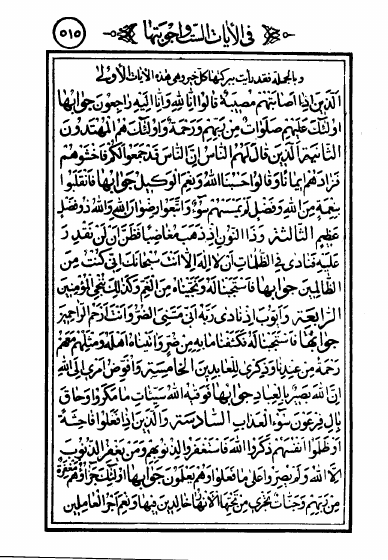 ٥١٥
في الآيات الست وأجوبتها
وبالجملة فقد رأيت ببركتها كل خير وهي هذه الآيات الأولى
الذين إذا أصابتهم مصيبة قالوا إنا لله وإنا إليه راجعون جوابها
أولئك عليهم صلوات من ربهم ورحمة وأولئك هم المهتدون
الثانية الذين قال لهم الناس إن الناس قد جمعوا لكم فاخشوهم
فزادهم إيمانا وقالوا حسبنا الله ونعم الوكيل جوابها فانقلبوا
بنعمة من الله وفضل لم يمسسهم سوء واتبعوا رضوان الله والله ذو فضل
عظيم الثالثة وذا النون إذ ذهب مغاضبا فظن أن لن نقدر
عليه فنادى في الظلمات أن لا إله إلا أنت سبحانك إني كنت من
الظالمين جوابها فاستجبنا له ونجيناه من الغم وكذلك ننجي المؤمنين
الرابعة وأيوب إذ نادى ربه أني مسني الضر وأنت أرحم الراحمين
جوابها فاستجبنا له فكشفنا ما به من ضر وآتيناه أهله ومثلهم معهم
رحمة من عندنا وذكرى للعابدين الخامسة وأفوض أمري إلى الله
إن الله بصير بالعباد جوابها فوقاه الله سيئات ما مكروا وحاق
بآل فرعون سوء العذاب السادسة والذين إذا فعلوا فاحشة
أو ظلموا أنفسهم ذكروا الله فاستغفروا لذنوبهم ومن يغفر الذنوب
إلا الله ولم يصروا على ما فعلوا وهم يعلمون جوابها أولئك جزاؤهم مغفرة
من ربهم وجنات تجري من تحتها الأنهار خالدين فيها ونعم أجر العاملين